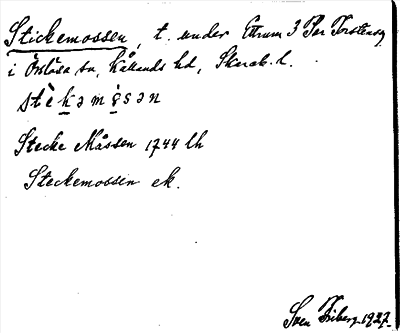 Stickemossen, t. under Ettrum 3 Per Torstensg
i Örslösa sn, Kållands hd, Skarab. l.
Stecke Måssen 1744 lh
Steckemossen ek.
Sven Friberg 1927.